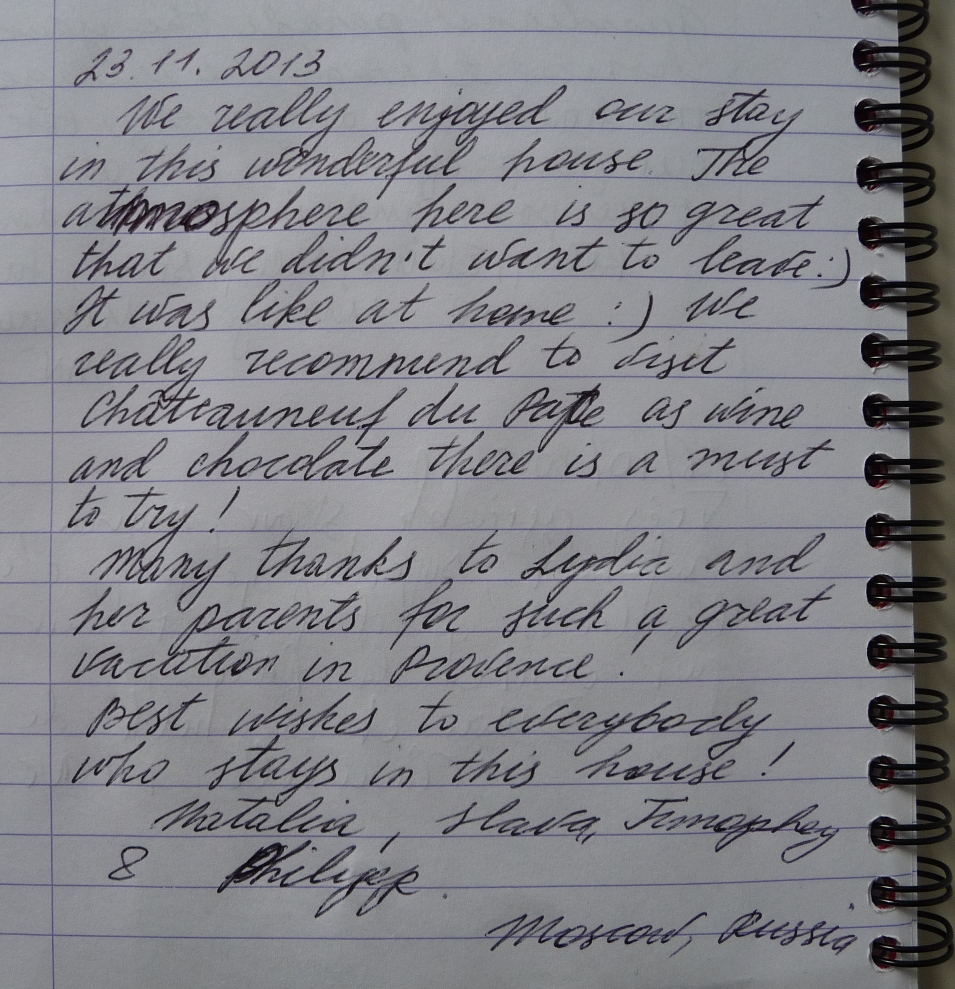 23.11.2013
We really enjoyed our stay
in this wonderful house. The
atmosphere here is so great
that we didn't want to leave:)
It was like at home :) We
really recommend to visit
Châteauneuf du Pape as wine
and chocolate there is a must
to try!
Many thanks to Lydia and
her parents for such a great
vacation in Provence!
Best wishes to everybody
who stays in this house!
Natalia, Slava, Timophey
& Philipp.
Moscow, Russia